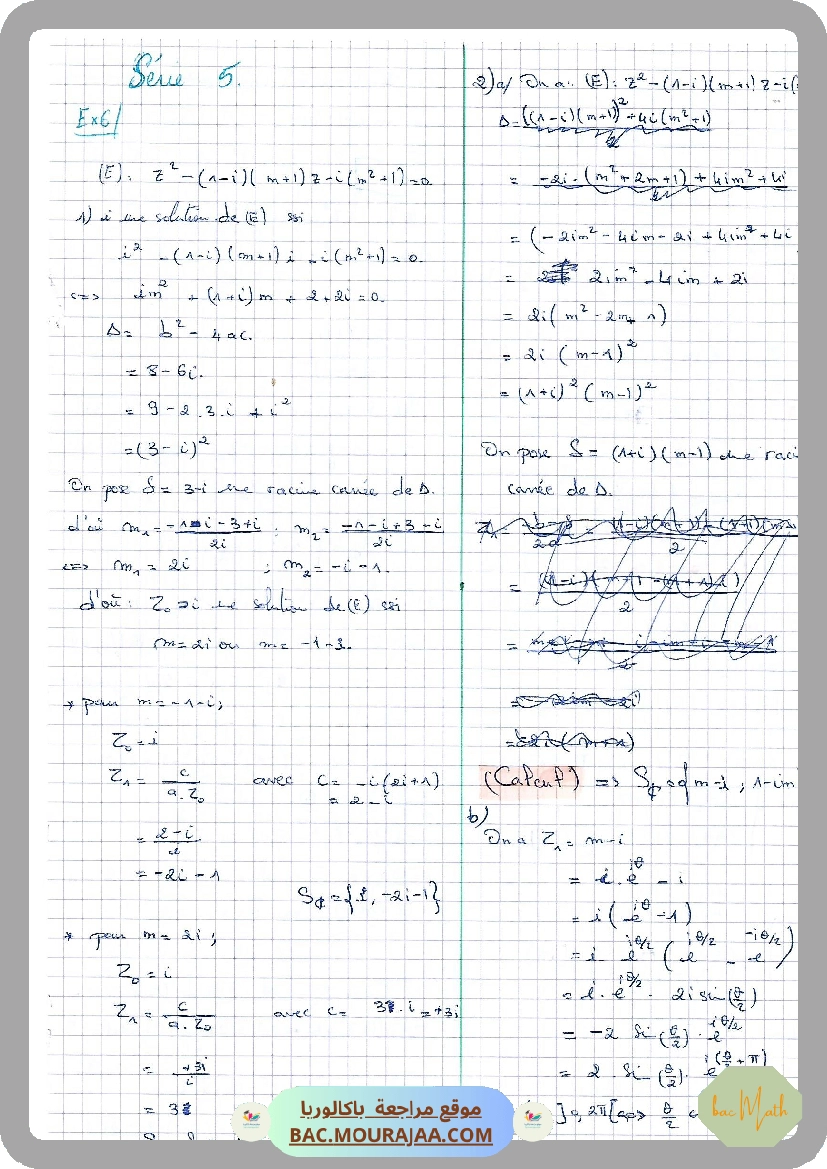 Série 5.
Ex6/
(E): z² - (1-i)(m+1) z - i(m²+1) = 0
1) i une solution de (E) ssi
i² - (1-i)(m+1) i - i(m²+1) = 0.
<=> im² + (1+i)m + 2+2i = 0.
Δ = b² - 4ac.
= 8 - 6i.
= 9 - 2.3.i + i²
= (3 - i)²
On pose S = 3-i une racine carrée de Δ.
d'où m₁ = (-1-i-3+i)/2i ; m₂ = (-1-i+3-i)/2i
<=> m₁ = 2i ; m₂ = -i-1.
d'où : Z₀ = i une solution de (E) ssi
m = 2i ou m = -1-i.
* pour m = -1-i;
Z₀ = i
Z₁ = c/(a.Z₀) avec c = -i(2i+1)
= 2-i
= (2-i)/i
= -2i-1
S_ℂ = {i, -2i-1}
* pour m = 2i;
Z₀ = i
Z₁ = c/(a.Z₀) avec c = 3.i = +3i
= +3i/i
= 3
2)a/ On a: (E): z² - (1-i)(m+1) z - i(
Δ = ((1-i)(m+1))² + 4i(m²+1)
= -2i.(m²+2m+1) + 4im² + 4i
= (-2im² - 4im - 2i + 4im² + 4i
= 2im² - 4im + 2i
= 2i(m² - 2m + 1)
= 2i (m-1)²
= (1+i)² (m-1)²
On pose S = (1+i)(m-1) une raci
carrée de Δ.
(Calcul) => S_ℂ = { m-i ; 1-im
b)
On a Z₁ = m-i
= i.e^{iθ} - i
= i(e^{iθ} - 1)
= i e^{iθ/2} (e^{iθ/2} - e^{-iθ/2})
= i.e^{iθ/2} . 2i sin(θ/2)
= -2 sin(θ/2) . e^{iθ/2}
= 2 . sin(θ/2). e^{i(θ/2 + π)}
]0, 2π[ <=> θ/2
bac Math
موقع مراجعة باكالوريا
BAC.MOURAJAA.COM